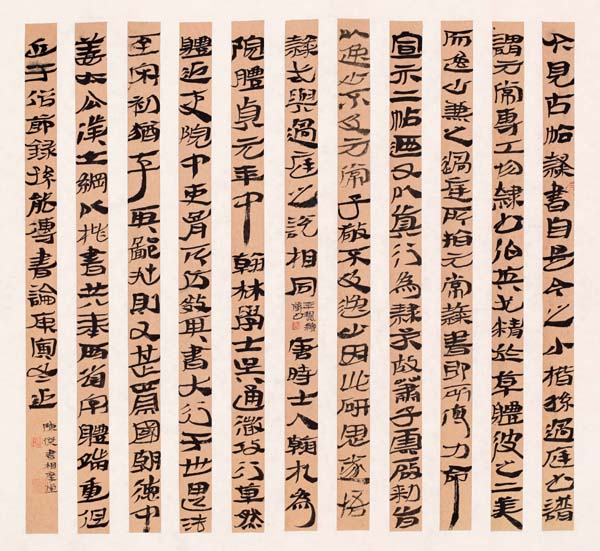 見古帖隸書自是今之小楷孫過庭書譜
謂元常專工於隸書伯英尤精於草體彼之二美
而逸少兼之過庭所指元常隸書即所傳力命
宣示二帖迺又以真行為隸示故蕭子雲啟勅旨
以逸少不及元常子敬不及逸少因此研思遂悟
隸式與過庭之說相同唐時士人翰札為
院體貞元年中翰林學士吳通微攻行草然
體近吏院中吏胥所放效其書大行于世思法
至宋初猶其鄙拙則又甚焉國朝中
姜公漢之綱以楷書共兩體端重但
近于俗節錄孫能傳書論
陳俊書相